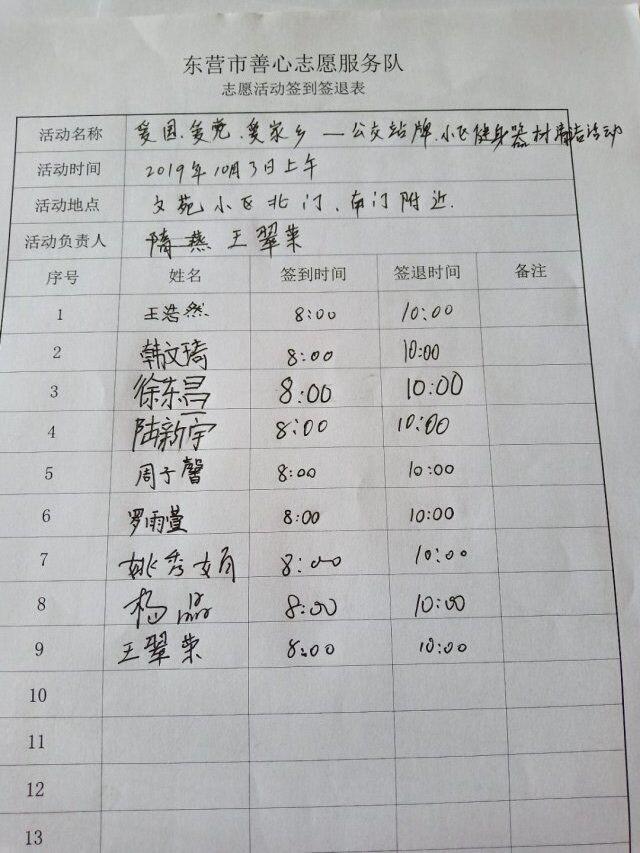 东营市善心志愿服务队
志愿活动签到签退表
活动名称 爱国、爱党、爱家乡—公交站牌、小区健身器材清洁活动
活动时间 2019年10月3日上午
活动地点 文苑小区北门、南门附近.
活动负责人 隋燕 王翠荣
序号 姓名 签到时间 签退时间 备注
1 王浩然 8:00 10:00
2 韩文琦 8:00 10:00
3 徐东昌 8:00 10:00
4 陆新宇 8:00 10:00
5 周子馨 8:00 10:00
6 罗雨萱 8:00 10:00
7 姚秀娟 8:00 10:00
8 杨晶 8:00 10:00
9 王翠荣 8:00 10:00
10
11
12
13